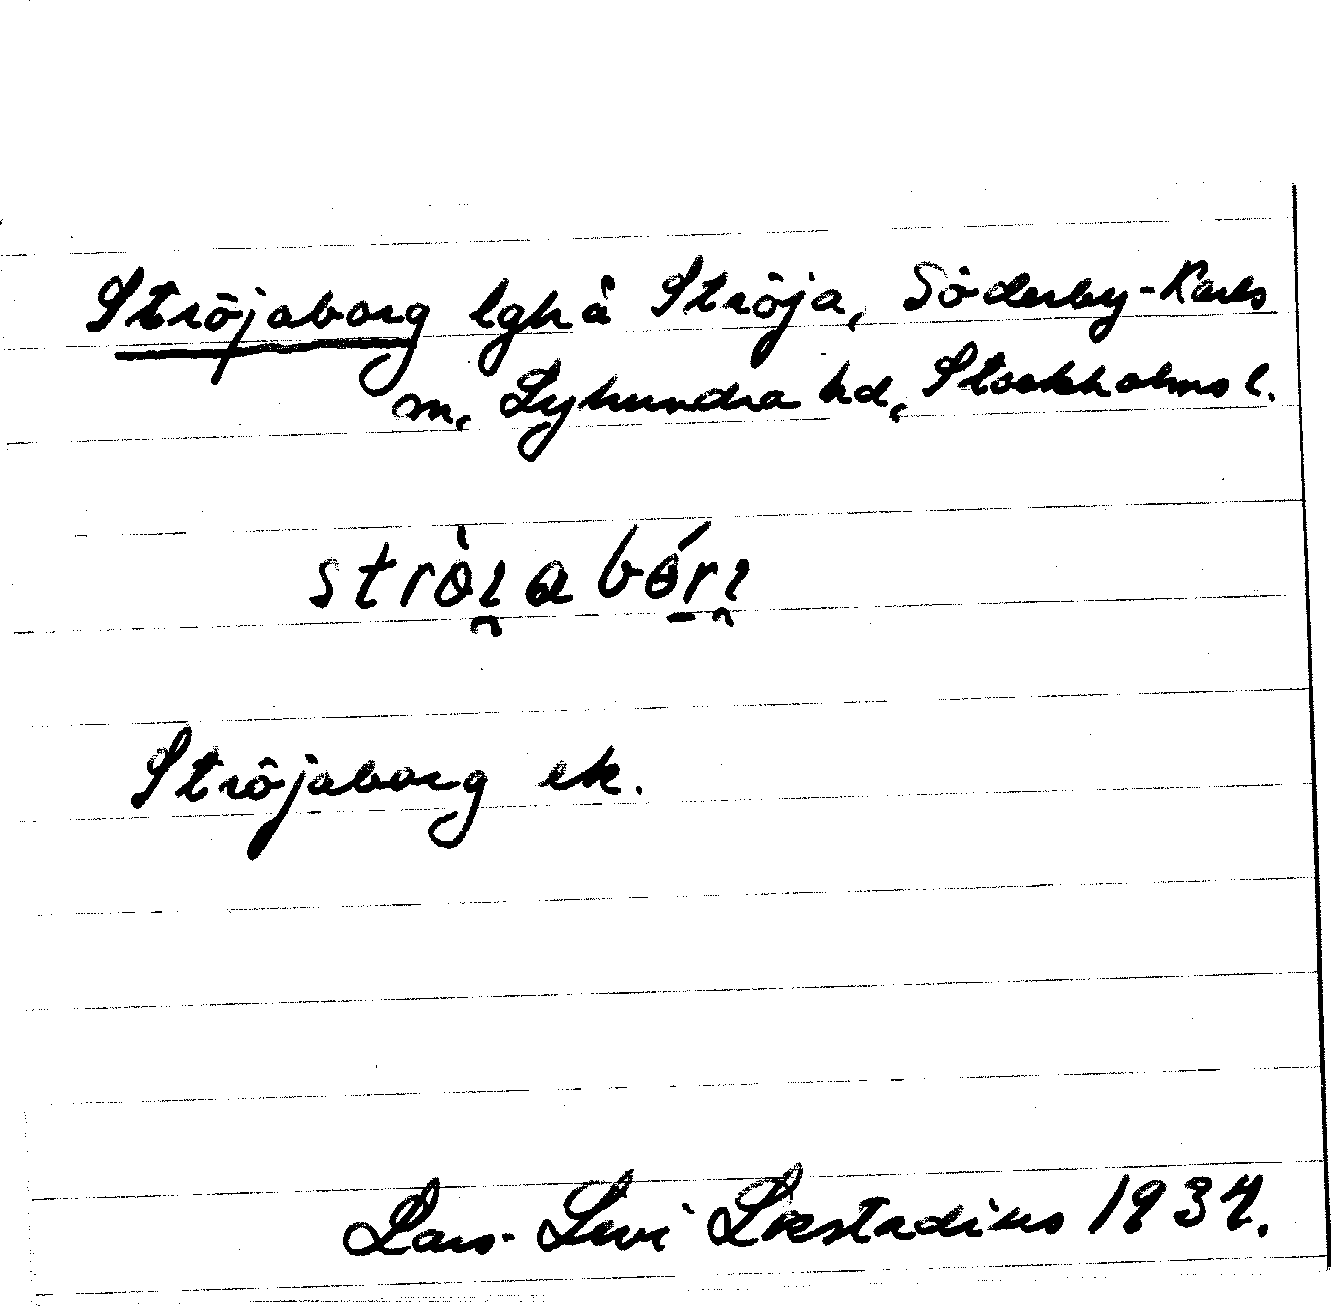 Ströjaborg lgh å Ströja, Söderby-Karls
m, Lyhundra hd, Stockholms l.
strö̀i̯a bórı̯
Ströjaborg ek.
Lars-Levi Læstadius 1934.